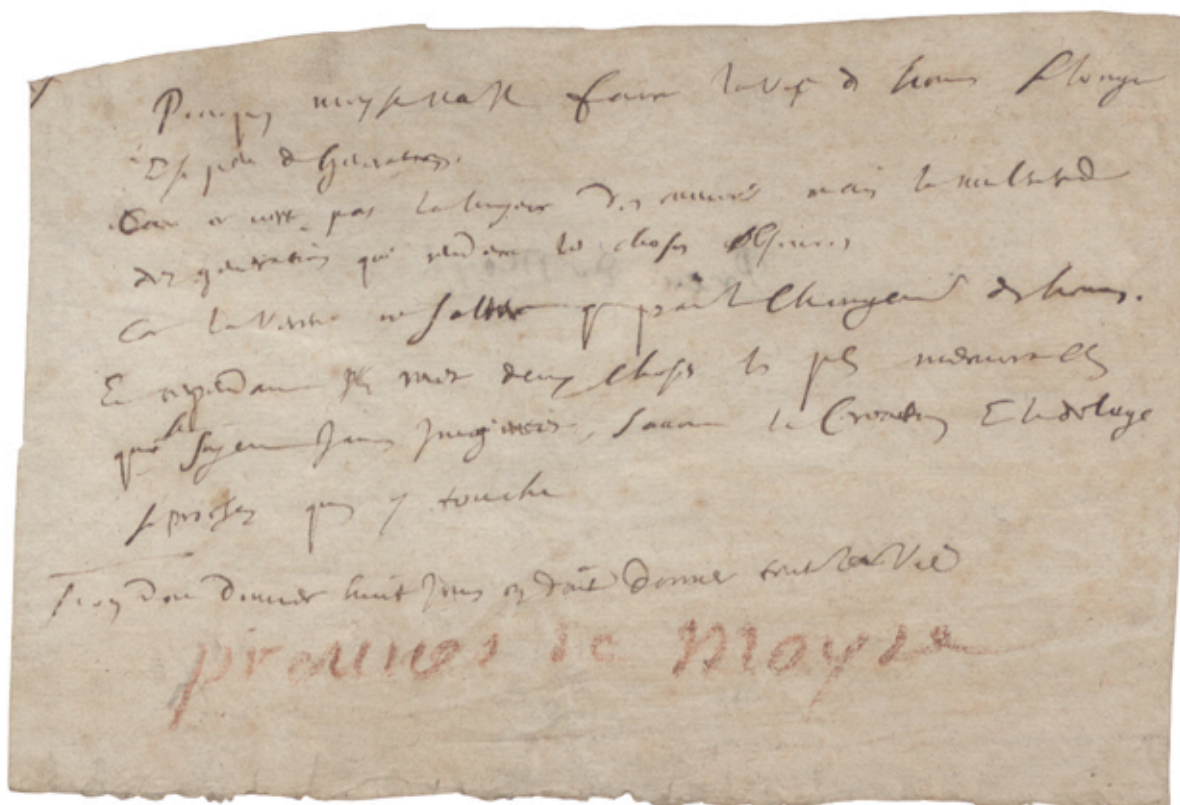 Pourquoy moyse va til faire la vie des hommes si longue
Et si peu de generations.
Car ce n'est pas la longueur des années mais la multitude
des generations qui rendent les choses obscures
Car la verité ne saltere que par le changement des hommes.
Et cependant il met deux choses les plus memorables
qui se soyent jamais imaginées, savoir la Creation Et le deluge
si proches quon y touche
Si on doit donner huit jours on doit donner toute la vie
preuues de Moyse